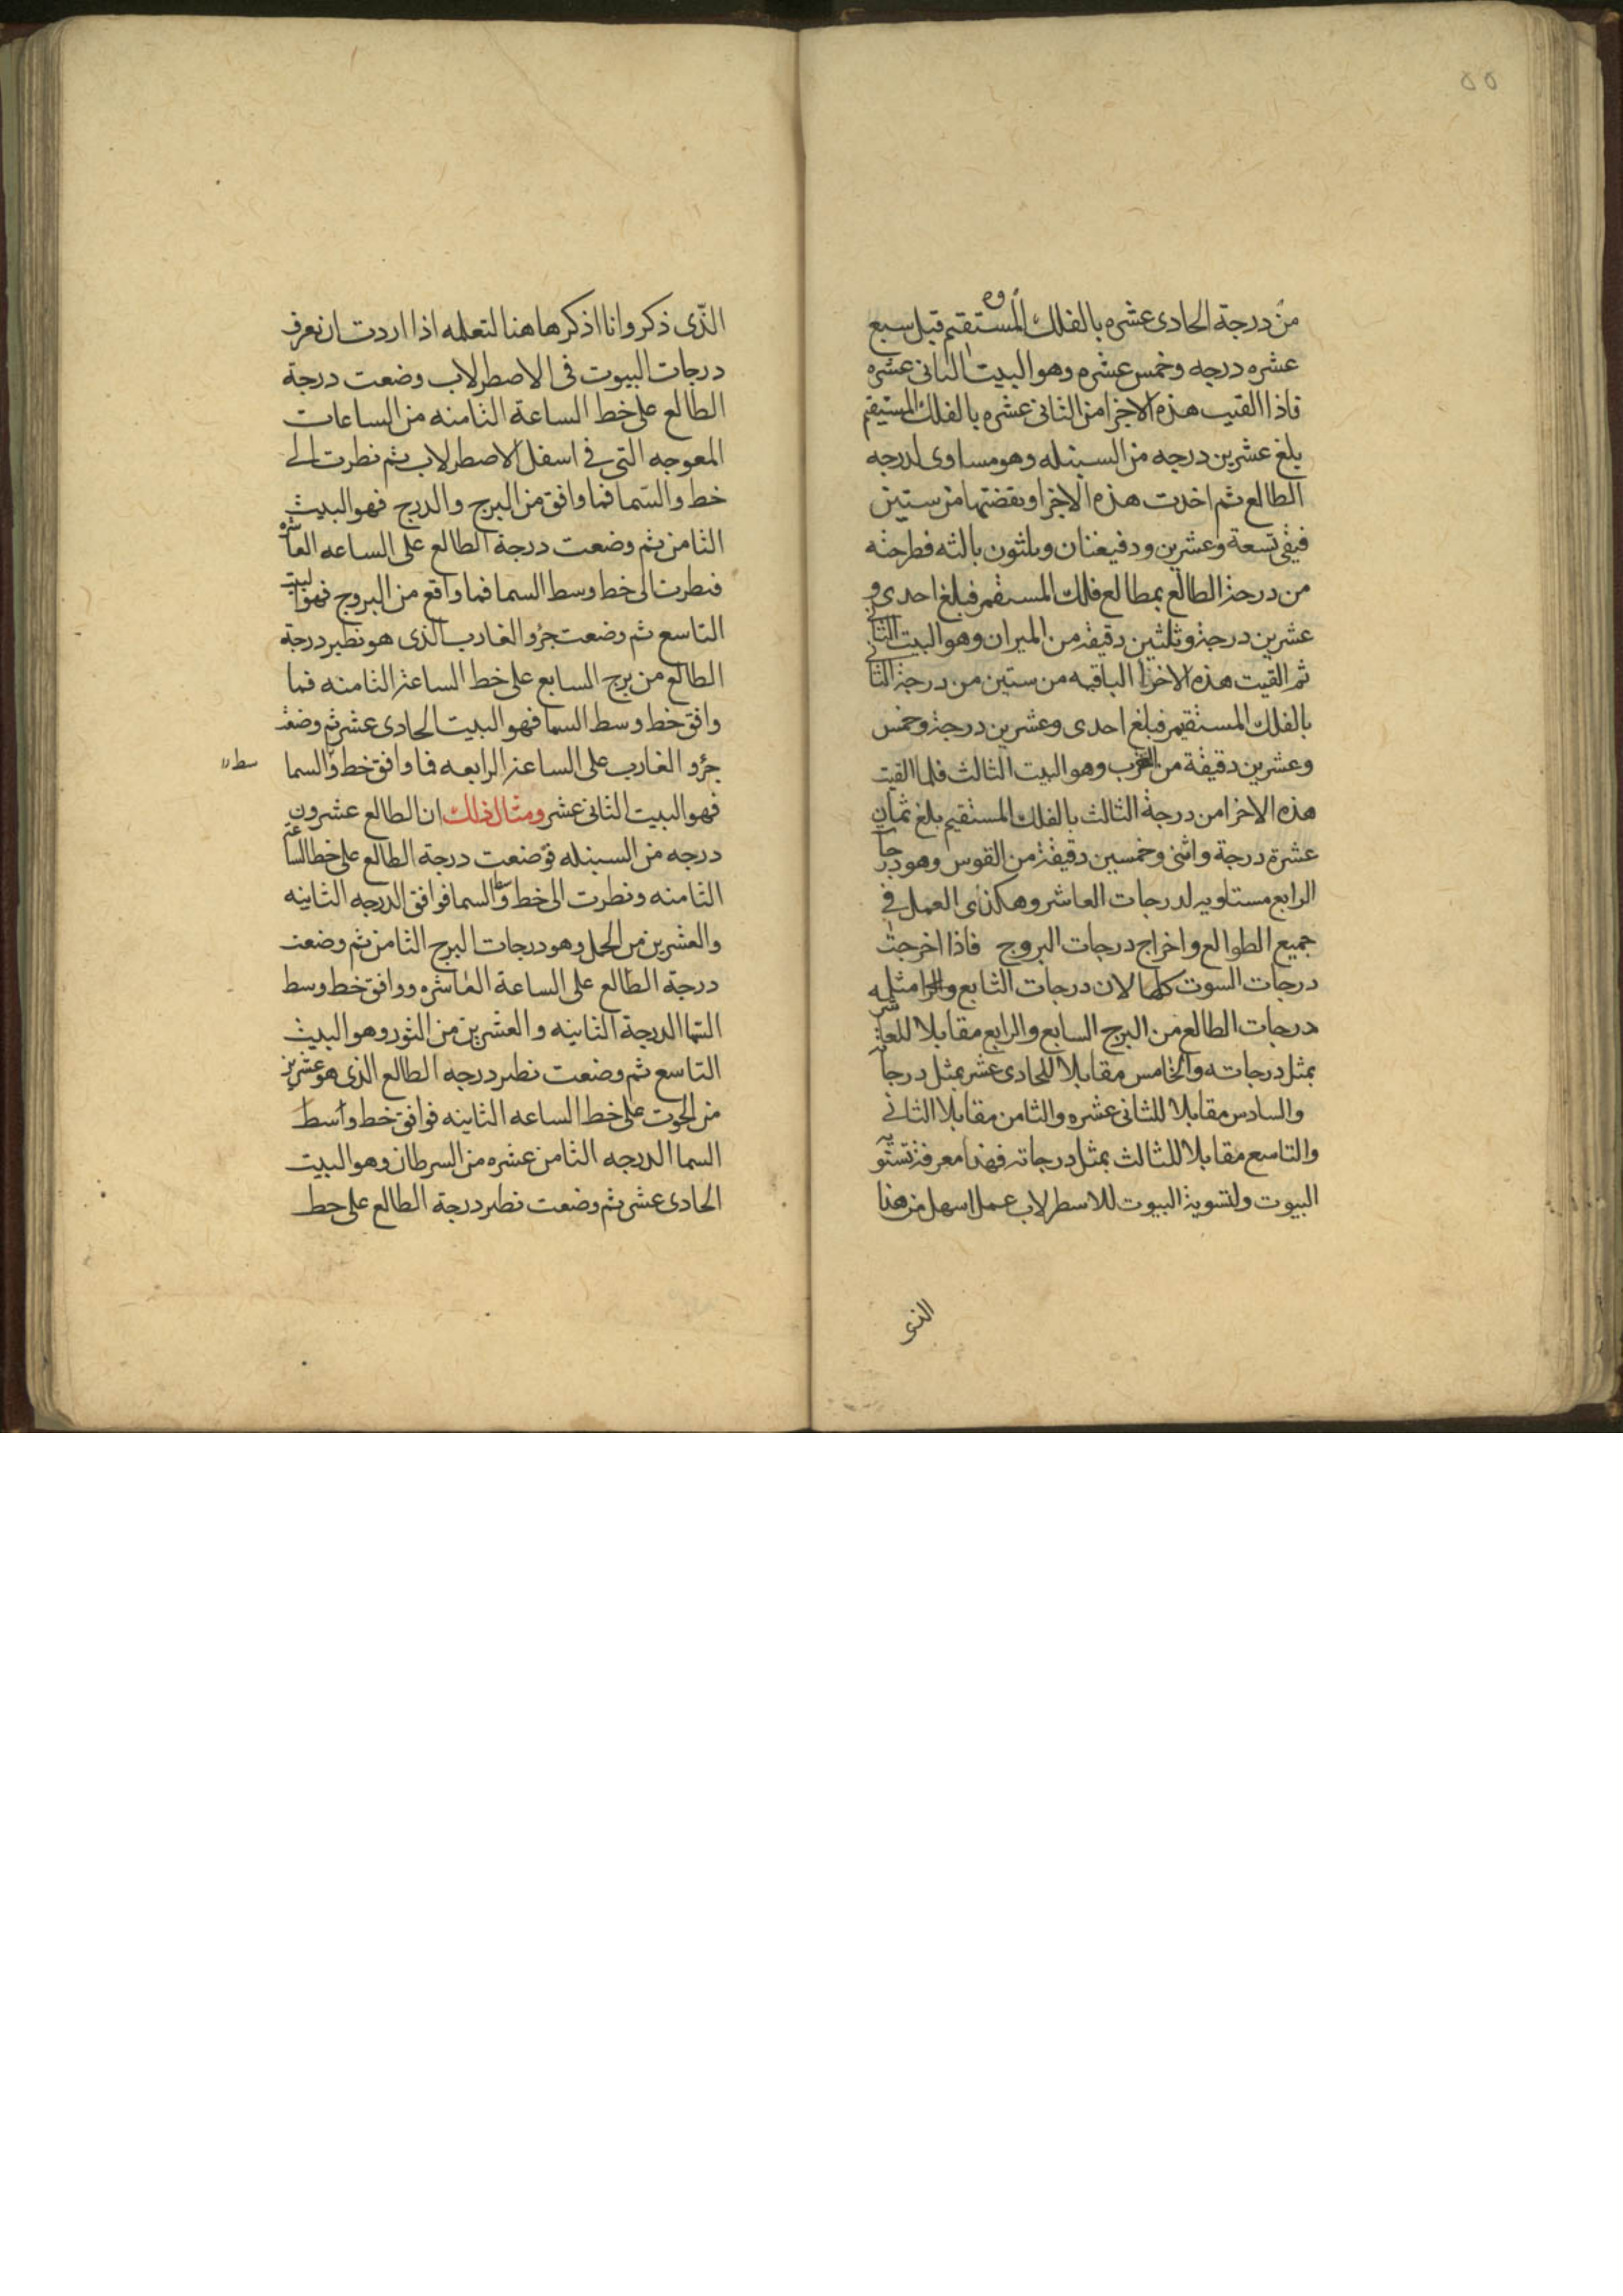 ٥٥
من درجة الحادى عشره بالفلك المستقيم قبل سبع
عشره درجه وخمس عشره وهو البيت الثانى عشره
فاذا القيت هذه الاجزا من الثانى عشره بالفلك المستيقم
بلغ عشرين درجه من السنبله وهو مساوى لدرجه
الطالع ثم اخدت هذه الاجزا ونقضتها من ستين
فيقى تسعة وعشرين ودقيقتان وثلثون بالثه فطرحته
من درجة الطالع بمطالع فلك المستقيم فبلغ احدى و
عشرين درجة وثلثين دقيقة من الميزان وهو البيت الثانى
ثم القيت هذه الاخزا الباقيه من ستين من درجة الثانى
بالفلك المستقيم فبلغ احدى وعشرين درجة وخمس
وعشرين دقيقة من العقرب وهو البيت الثالث فلما القيت
هذه الاخرا من درجة الثالث بالفلك المستقيم بلغ ثمان
عشرة درجة واثنى وخمسين دقيقة من القوس وهو درجا
الرابع مستاويه لدرجات العاشر وهكذى العمل في
جميع الطوالع واخراج درجات البروج فاذا اخرجت
درجات السوت كلها لان درجات الثابع والرا مثله
درجات الطالع من البرج السابع والرابع مقابلا للعاشر
بمثل درجاته والخامس مقابلا للحادى عشر بمثل درجاته
والسادس مقابلا للثانى عشره والثامن مقابلا الثانى
والتاسع مقابلا للثالث بمثل درجاته فهذا معرفة تستويه
البيوت ولتسوية البيوت للاسطرلاب عمل اسهل من هذا
الذى
الذى ذكر وانا اذكرها هنا لتعلمه اذا اردت ان تعرف
درجات البيوت فى الاصطرلاب وضعت درجة
الطالع على خط الساعة الثامنه من الساعات
المعوجه التى فى اسفل الاصطرلاب ثم نطرت الى
خط والسما فما وافق من البرج والدرج فهو البيت
الثامن ثم وضعت درجة الطالع على الساعه العاشره
فنطرت الى خط وسط السما فما واقع من البروج فهو البيت
التاسع ثم وضعت جزو الغارب الذى هو نطير درجة
الطالع من برج السابع على خط الساعة الثامنه فما
وافق خط وسط السما فهو البيت الحادى عشر ثم وضعت
جزو الغارب على الساعة الرابعه فما وافق خط والسما
سط
فهو البيت الثانى عشر ومثال ذلك ان الطالع عشرون
درجه من السنبله فوضعت درجة الطالع على خط الساعة
الثامنه ونطرت الى خط وسط السما فوافق الدرجه الثانيه
والعشرين من الحمل وهو درجات البرج الثامن ثم وضعت
درجة الطالع على الساعة العاشره ووافق خط وسط
السما الدرجة الثانيه والعشرين من الثور وهو البيت
التاسع ثم وضعت نطير درجه الطالع الذى هو عشرين
من الحوت على خط الساعه الثانيه فوافق خط واسط
السما الدرجه الثامن عشره من السرطان وهو البيت
الحادى عشر ثم وضعت نطير درجة الطالع على خط